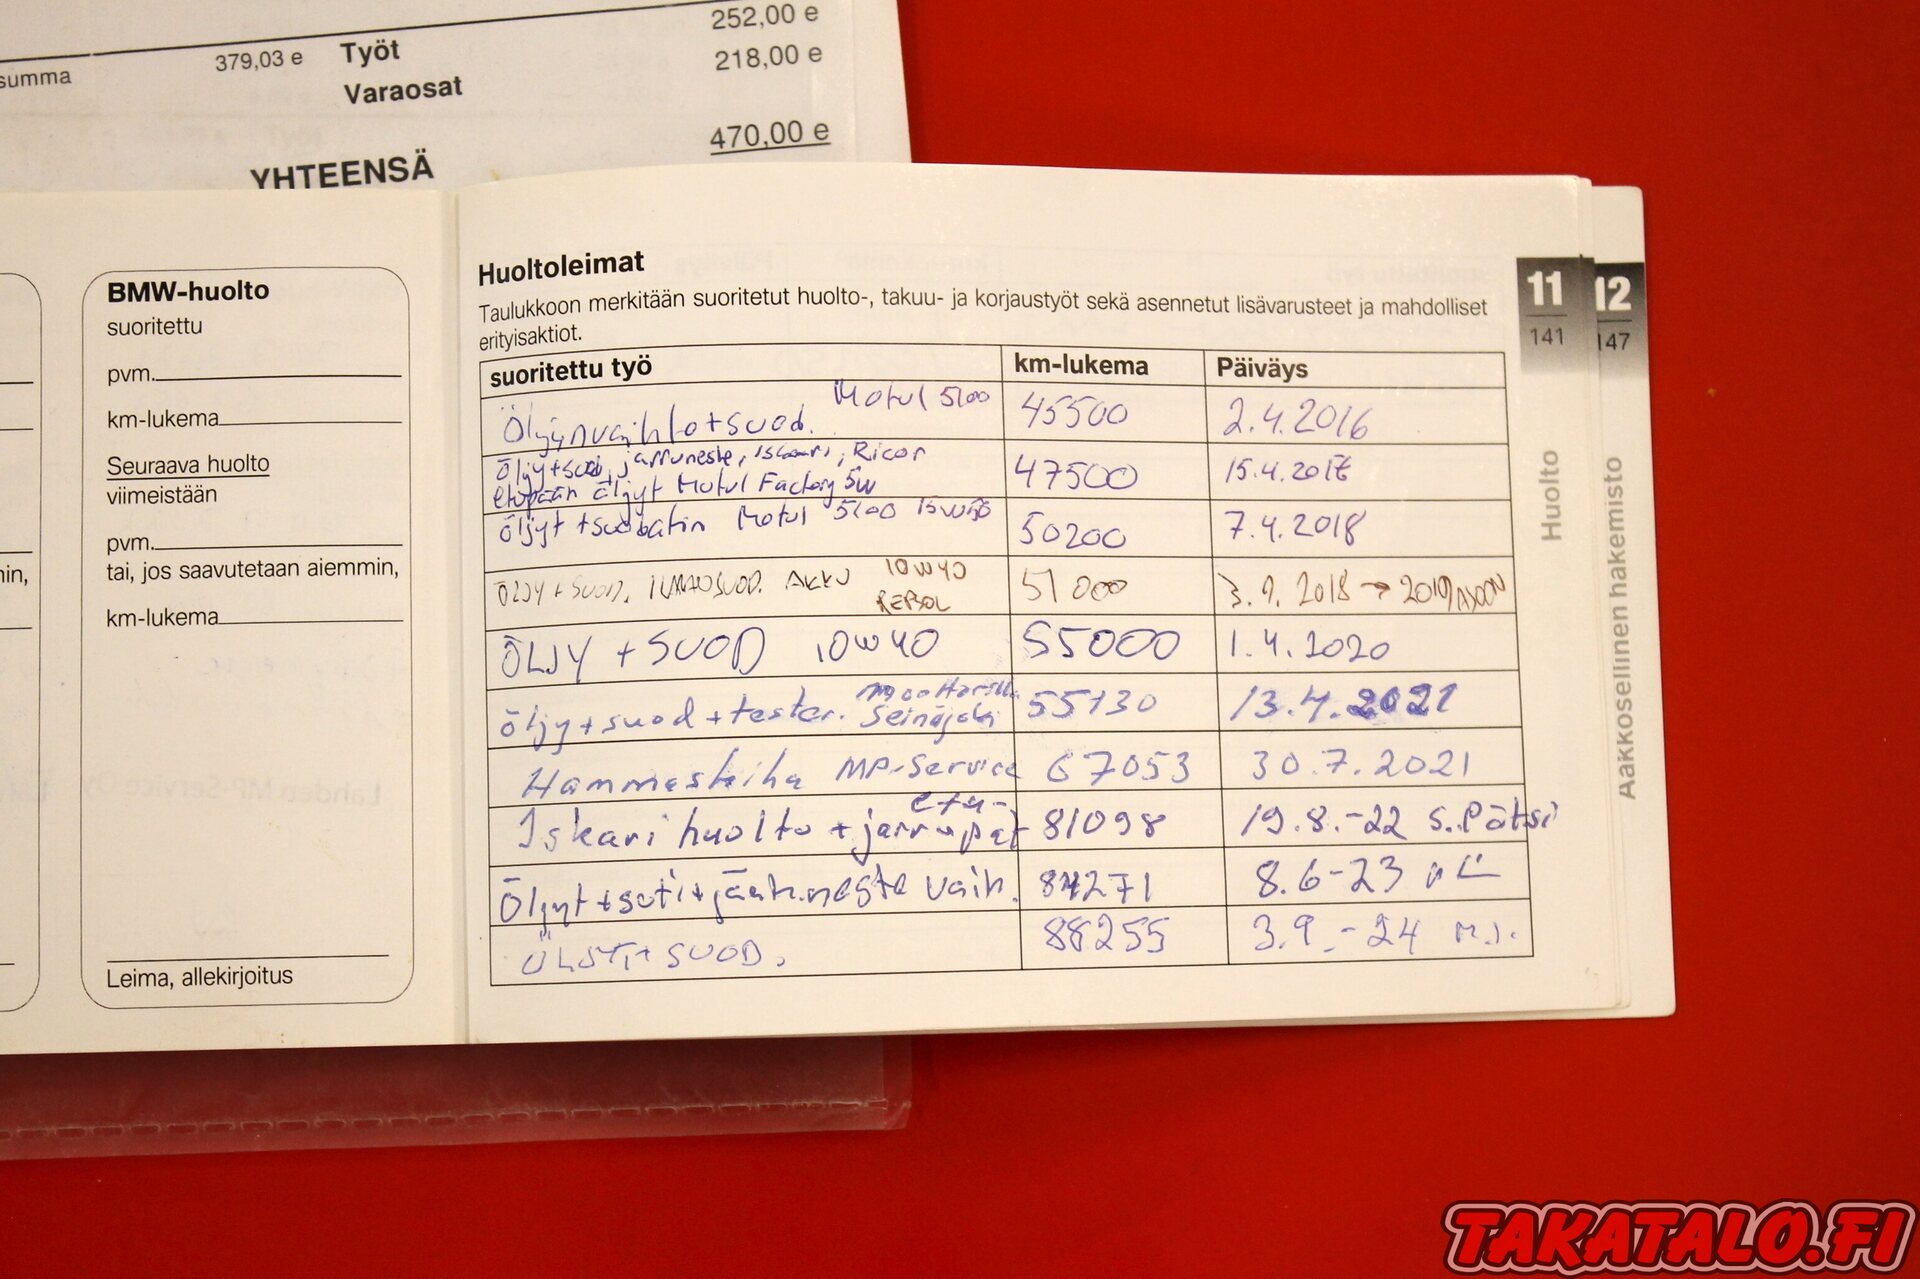 252,00 e
summa 379,03 e Työt 218,00 e
Varaosat
470,00 e
YHTEENSÄ
BMW-huolto
suoritettu
pvm.
km-lukema
Seuraava huolto
viimeistään
pvm.
tai, jos saavutetaan aiemmin,
km-lukema
Leima, allekirjoitus
min,
Huoltoleimat
Taulukkoon merkitään suoritetut huolto-, takuu- ja korjaustyöt sekä asennetut lisävarusteet ja mahdolliset
erityisaktiot.
suoritettu työ km-lukema Päiväys
Motul 5100
Öljynvaihto+suod. 45500 2.4.2016
Öljy+suod, jarruneste, iskari, Ricor
etupään öljyt Motul Factory 5w 47500 15.4.2017
Öljyt + suodatin Motul 5100 15w50 50200 7.4.2018
ÖLJY + SUOD. ILMANSUOD. AKKU 10W40
REPSOL 51000 3.9.2018 → 2019
ÖLJY + SUOD 10W40 55000 1.4.2020
öljy + suod + tester. Seinäjoki 55130 13.4.2021
Hammashihna MP-Service 67053 30.7.2021
etu-
Iskari huolto + jarrupat 81098 19.8.-22 S.Pätsi
Öljyt + suti + jääh.neste vaih. 84271 8.6-23
ÖLJYT + SUOD. 88255 3.9.-24
11
141
Huolto
12
147
Aakkosellinen hakemisto
TAKATALO.FI